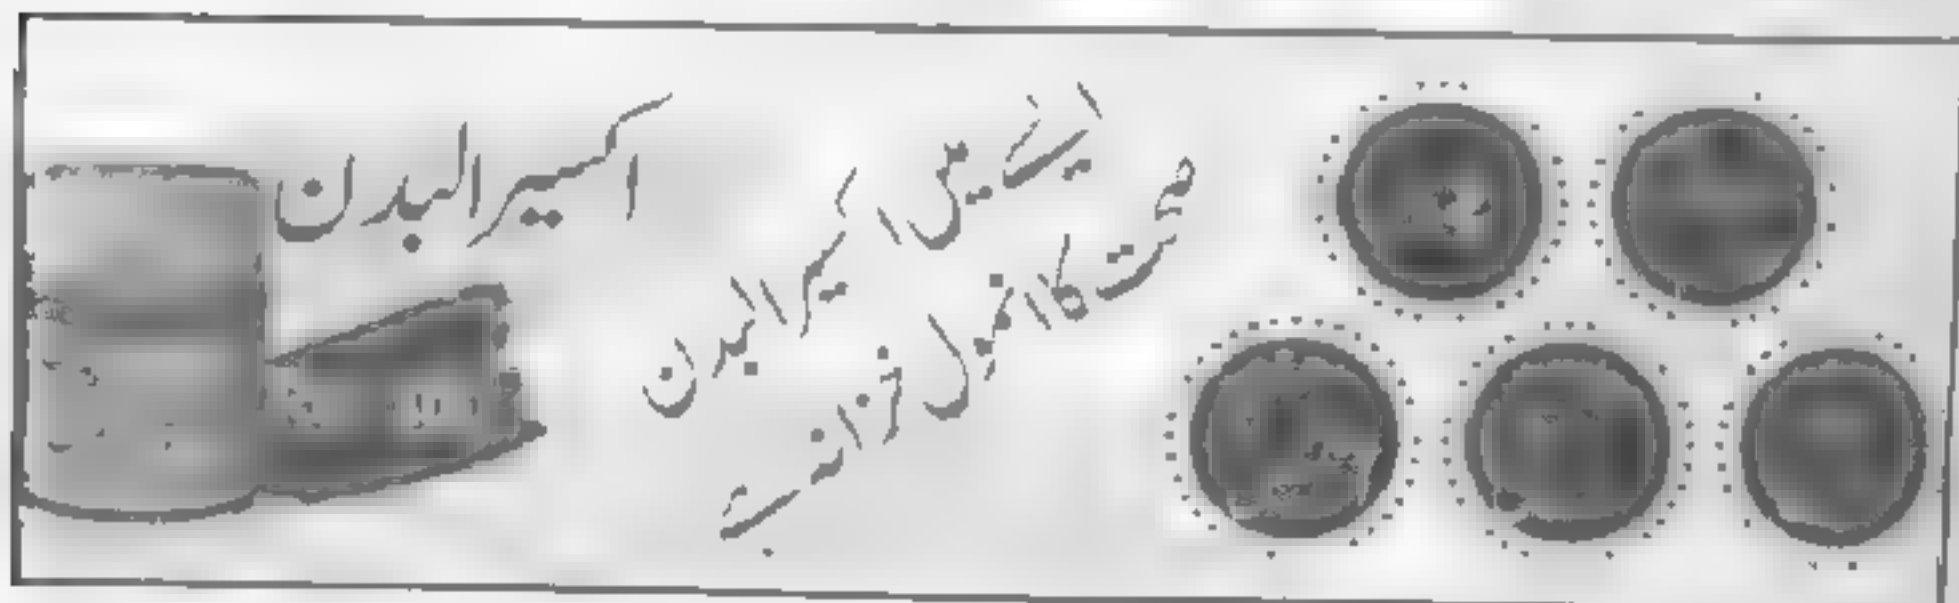 اکسیر البدن
ایسے میں اکسیر البدن
صحت کا انمول خزانہ ہے